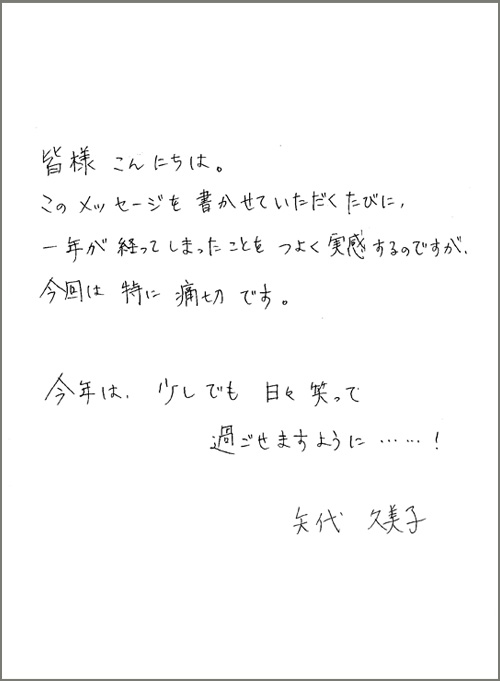 皆様 こんにちは。
このメッセージを 書かせていただくたびに、
一年が 経ってしまったことを つよく実感するのですが、
今回は 特に 痛切 です。
今年は、少しでも 日々 笑って
過ごせますように……！
矢代 久美子